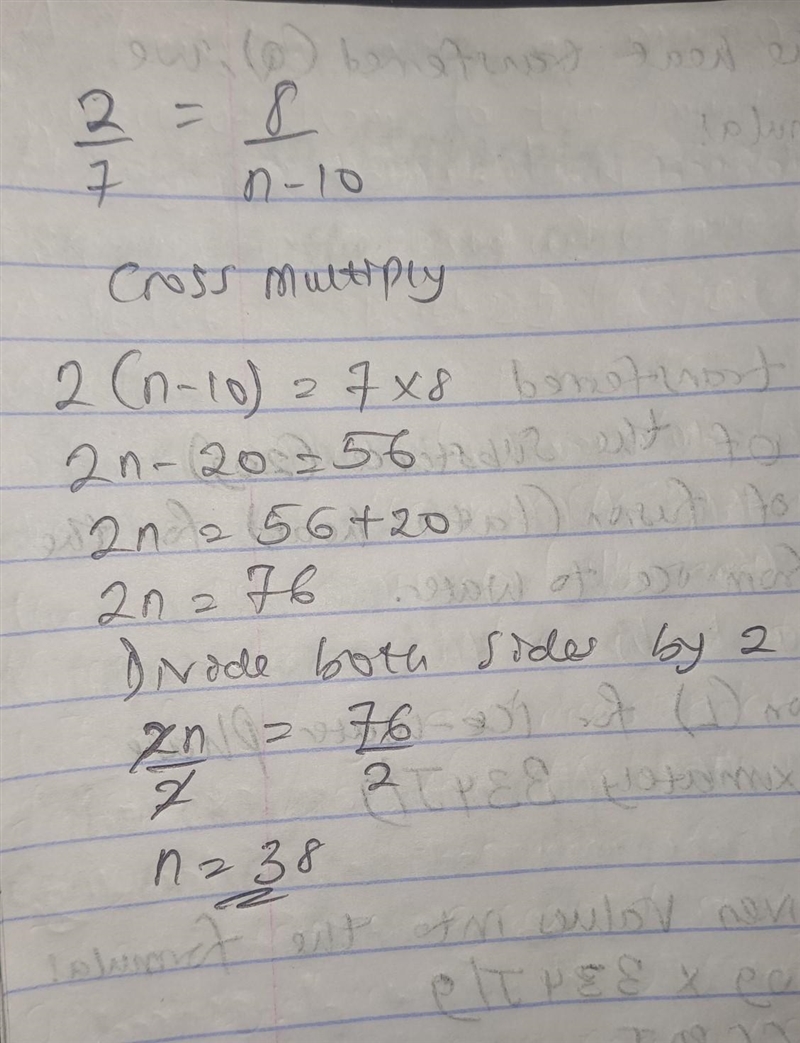 2/7 = 8/n-10
Cross multiply
2(n-10) = 7x8
2n-20=56
2n = 56+20
2n = 76
Divide both sides by 2
2n/2 = 76/2
n = 38